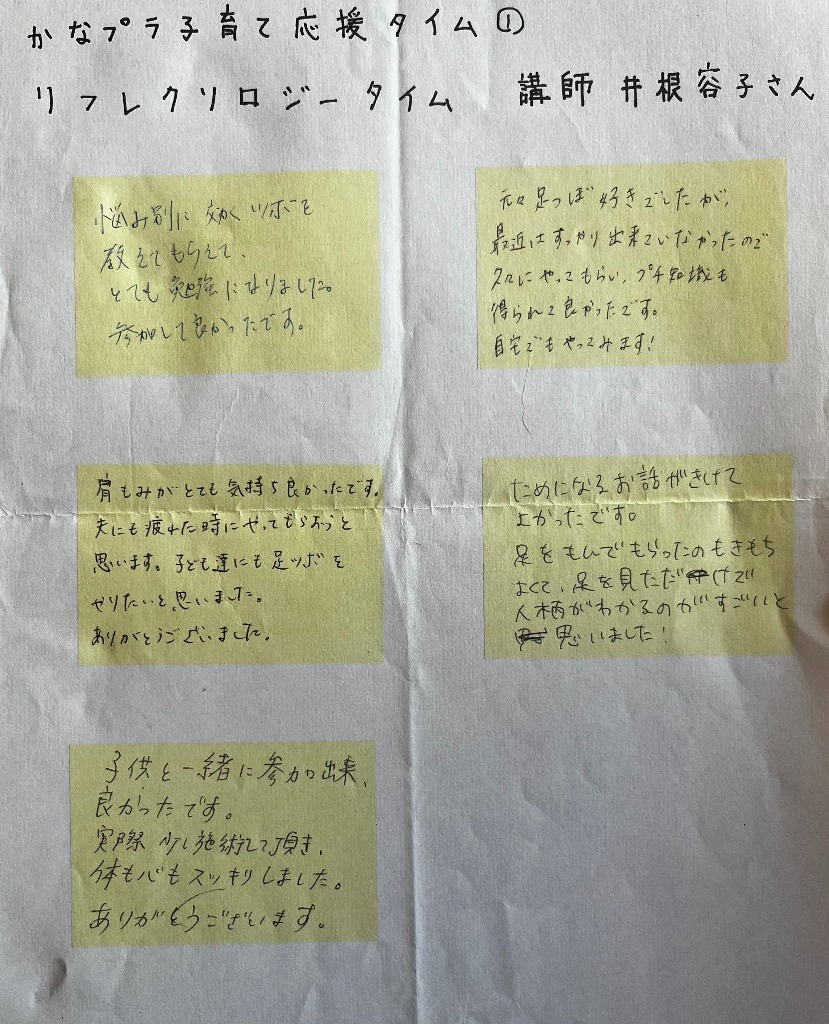 かなプラ子育て応援タイム①
リフレクソロジータイム 講師 井根容子さん
悩み別に効くツボを
教えてもらえて、
とても勉強になりました。
参加して良かったです。
元々足つぼ好きでしたが、
最近はすっかり出来ていなかったので
久々にやってもらい、プチ知識も
得られて良かったです。
自宅でもやってみます!
肩もみがとても気持ち良かったです。
夫にも疲れた時にやってもらおうと
思います。子ども達にも足ツボを
やりたいと思いました。
ありがとうございました。
ためになるお話がきけて
よかったです。
足をもんでもらったのもきもち
よくて、足を見ただけで
人柄がわかるのがすごいと
思いました!
子供と一緒に参加出来、
良かったです。
実際少し施術して頂き、
体も心もスッキリしました。
ありがとうございます。